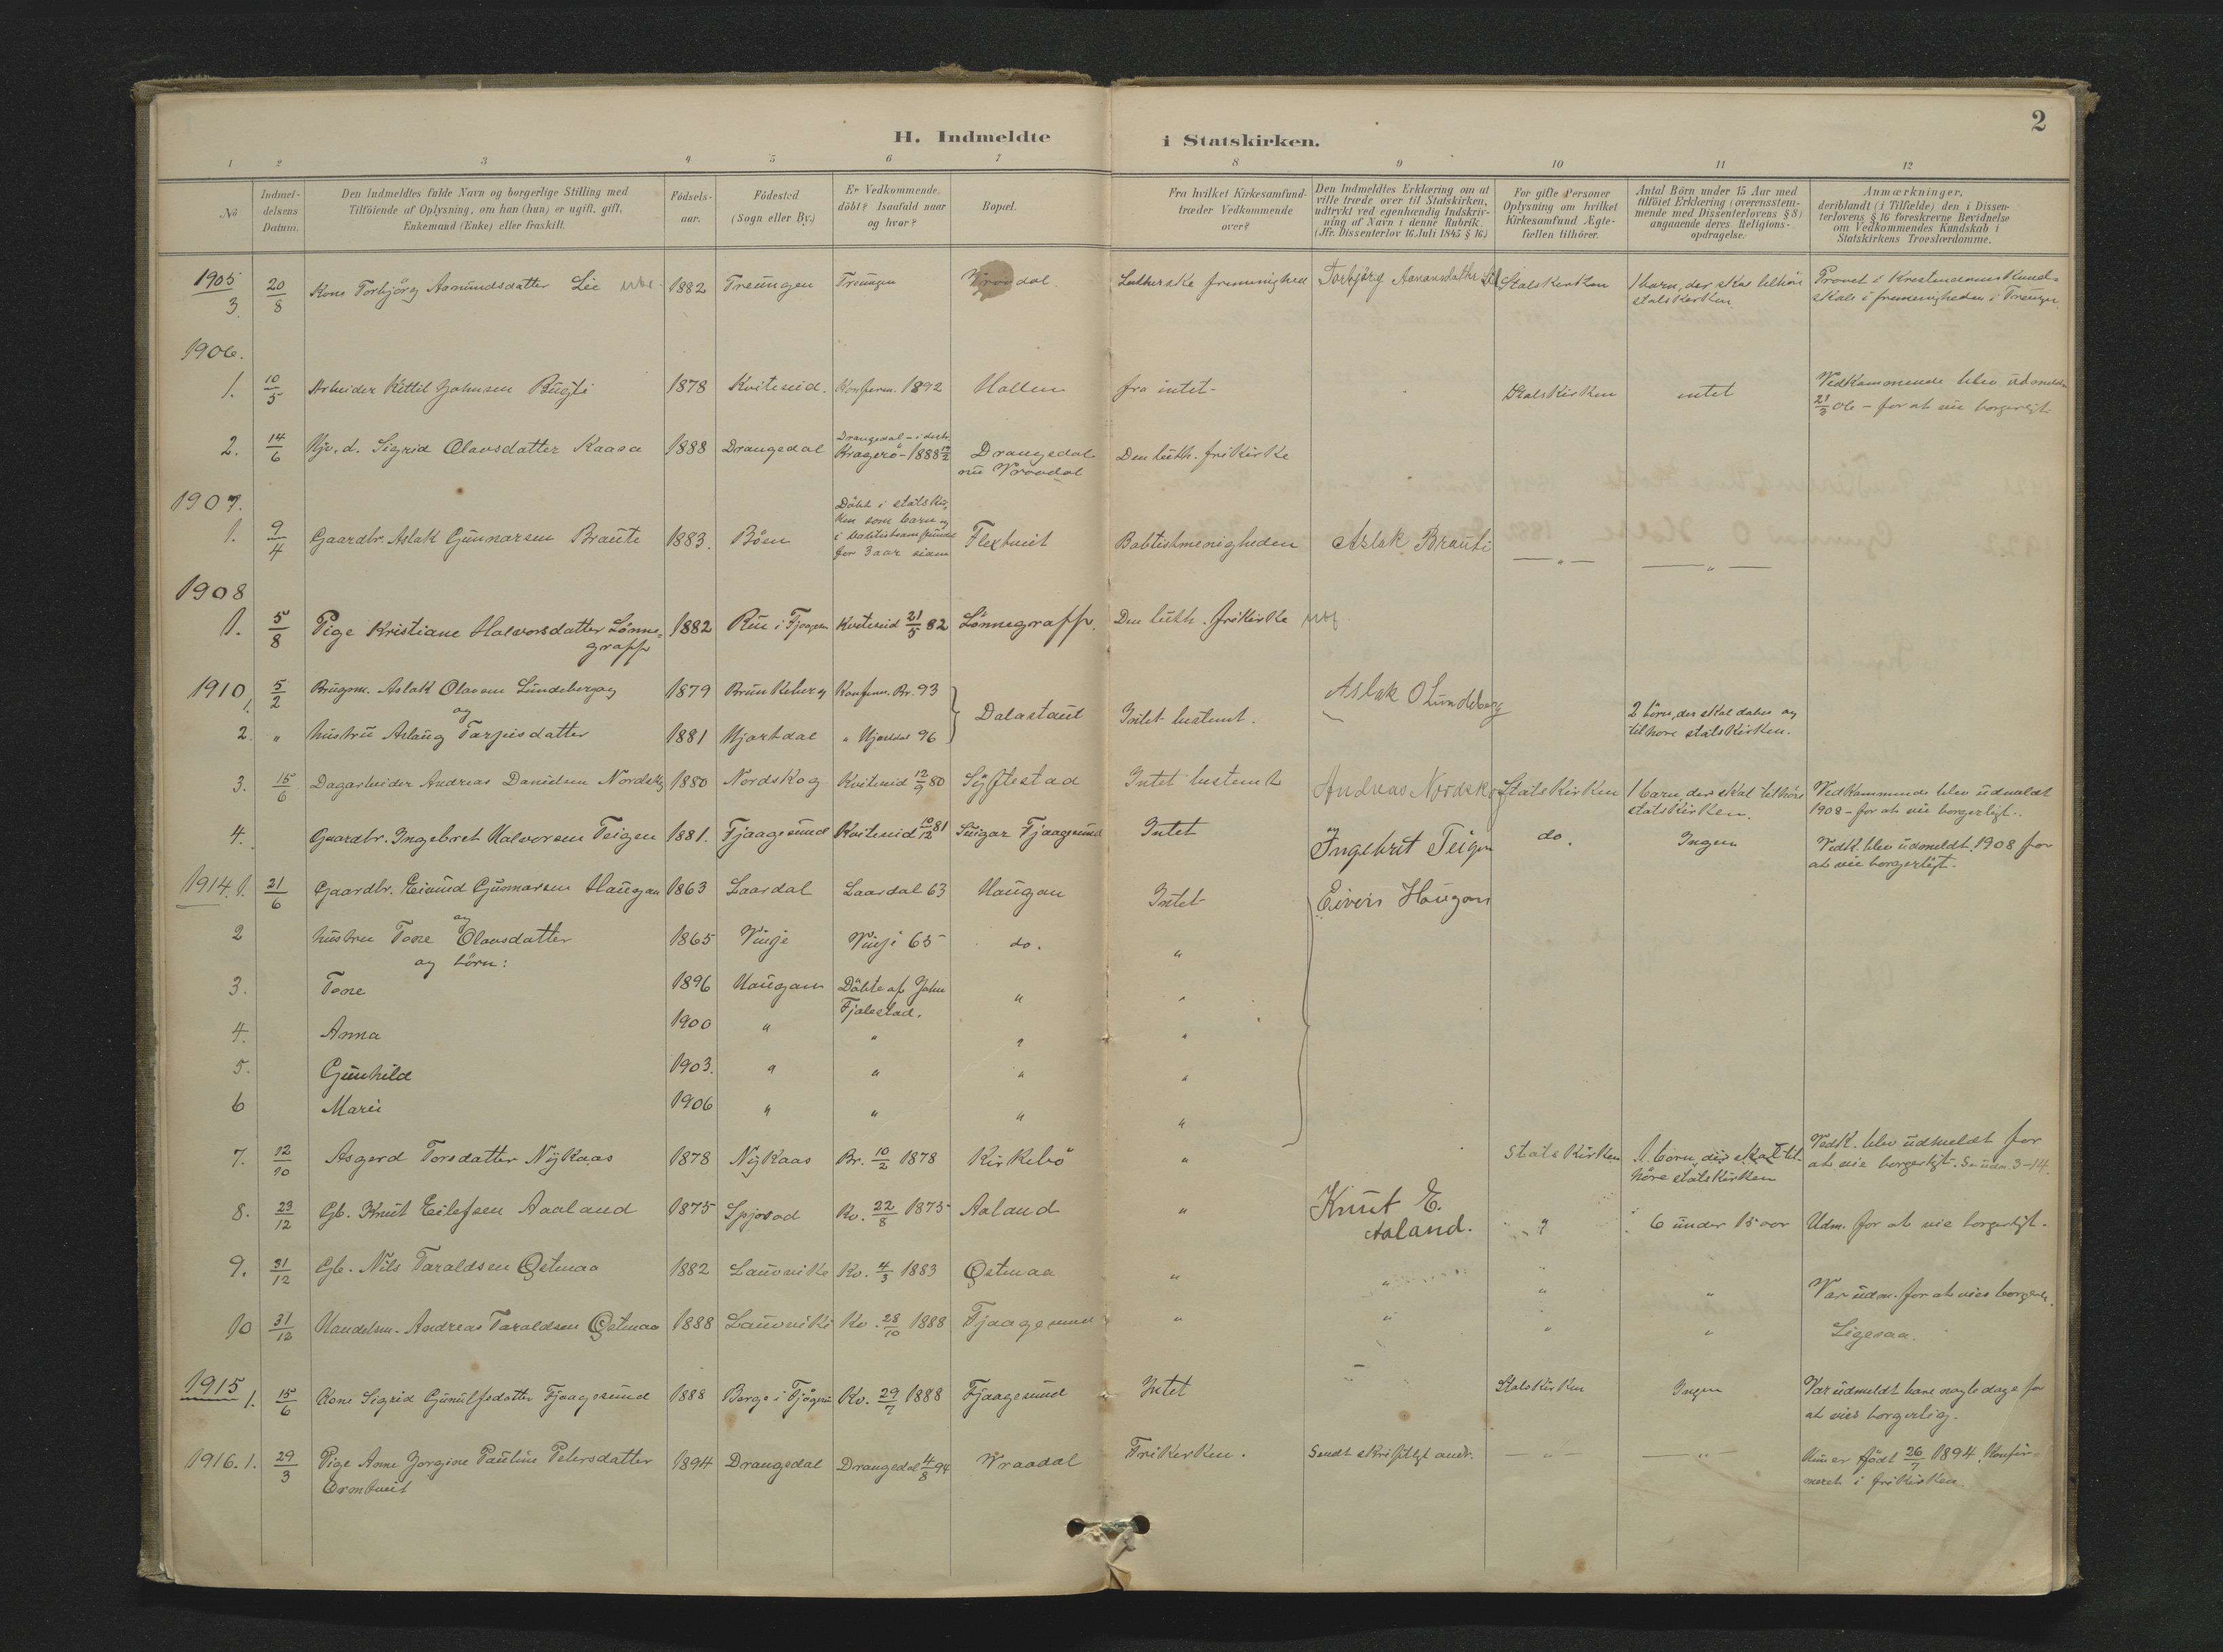 2
H. Indmeldte i Statskirken.
1 2 3 4 5 6 7 8 9 10 11 12
No
Indmeldelsens Datum.
Den Indmeldtes fulde Navn og borgerlige Stilling med
Tilföiende af Oplysning, om han (hun) er ugift, gift,
Enkemand (Enke) eller fraskilt.
Födselsaar.
Födested
(Sogn eller By.)
Er Vedkommende
döbt? Isaafald naar
og hvor?
Bopæl.
Fra hvilket Kirkesamfund
træder Vedkommende
over?
Den Indmeldtes Erklæring om at
ville træde over til Statskirken,
udtrykt ved egenhændig Indskriv-
ning af Navn i denne Rubrik.
(Jfr. Dissenterlov 16 Juli 1845 § 16)
For gifte Personer
Oplysning om hvilket
Kirkesamfund Ægte-
fællen tilhörer.
Antal Börn under 15 Aar med
tilföiet Erklæring (overensstem-
mende med Dissenterlovens § 8)
angaaende deres Religions-
opdragelse.
Anmærkninger,
deriblandt (i Tilfælde) den i Dissen-
terlovens § 16 foreskrevne Bevidnelse
om Vedkommendes Kundskab i
Statskirkens Troeslærdomme.
1905
3. 20/8 Kone Torbjörg Asmundsdatter Lie 1882 Treungen Treungen Vraadal Lutherske frimenighed Statskirken 1 barn, der skal tilhöre
statskirken
Prövet i Kristendomskund-
skab i frimenigheden i Treungen
1906.
1. 10/5 Arbeider Kittil Johnsen Bugti 1878 Kviteseid. Konferm. 1892 Hallen fra intet Statskirken intet Vedkommende blev udmeldt
21/3 06 - for at vie borgerligt
2. 14/6 Sigrid Olavsdatter Kaasa 1888 Drangedal Drangedal
Kragerø - 1888 Drangedal
nu Vraadal Den luth. frikirke
1907.
1. 9/4 Gaardbr. Aslak Gunnarsen Brauti 1883. Böen Döbt i statskir-
ken som barn og
for 3 aar siden Flextveit Babtistmenigheden Aslak Brauti — „ — — „ —
1908
1. 5/8 Pige Kristiane Halvorsdatter Lönne=
grapp 1882 Rui i Fjaagesund Kviteseid 21/5 82 Lönnegrapp. Den luth. frikirke
1910
1. 5/2 Brugsm. Aslak Olavsen Lundeberg
og 1879 Brunkeberg Konferm. Br. 93 Dalastaul Intet bestemt. Aslak O Lundeberg 2 börn, der skal döbes og
tilhöre statskirken.
2. „ hustru Aslaug Tarjeisdatter 1881 Hjartdal „ Hjartdal 96
3. 15/6 Dagarbeider Andreas Danielsen Nordskog 1880 Nordskog Kviteseid 12/9 80 Syftestad Intet bestemt Andreas Nordskog Statskirken 1 barn der skal tilhöre
statskirken. Vedkommende blev udmeldt
1908 - for at vie borgerligt.
4. Gaardbr. Ingebret Halvorsen Teigen 1881. Fjaagesund Kviteseid 10/12 81 Fjaagesund Intet Ingebret Teigen do. Ingen Vedk. blev udmeldt 1908 for
at vie borgerligt.
1914. 1. 21/6 Gaardbr. Eivind Gunnarsen Haugan
og 1863 Laardal Laardal 63 Haugan Intet Eivin Haugan
2 hustru Tone Olavsdatter
og börn: 1865 Vinje Vinje 65 do. „
3. Tone 1896 Haugan Döbte af John
Fjalestad. „ „
4. Anna 1900 „ „ „ „
5. Gunhild 1903. „ „ „ „
6 Mari 1906 „ „ „ „
7. 12/10 Asgerd Torsdatter Nykaas 1878 Nykaas Br. 10/2 1878 Kirkebö „ Statskirken 1 börn, der skal til-
höre statskirken Vedk. blev udmeldt for
at vie borgerligt. Se udm. 3-14.
8. 23/12 Gb. Knut Eilefsen Aaland 1875 Spjosod Kv. 22/8 1875 Aaland „ Knut E.
Aaland. „ 6 under 15 aar Udm. for at vie borgerligt.
9. 31/12 Gb. Nils Taraldsen Østmaa 1882 Lauvviki Kv. 4/3 1883 Østmaa „ „ „ „ Var udm. for at vies borgerl.
10 31/12 Handelsm. Andreas Taraldsen Østmaa 1888 Lauvviki Kv. 28/10 1888 Fjaagesund „ „ „ „ Ligesaa.
1915
1. 15/6 Kone Sigrid Gunulfsdatter Fjaagesund 1888 Berge i Fjågesund Kv. 29/7 1888 Fjaagesund Intet — Statskirken Ingen Var udmeldt bare nogle dage for
at vies borgerlig.
1916. 1. 29/3 Pige Anne Jorgine Pauline Petersdatter
Ormtveit 1894 Drangedal Drangedal 4/8 94 Vraadal Frikirken. Sendt skriftligt andr. — „ — — „ — Hun er födt 26/7 1894. Konfir-
meret i frikirken